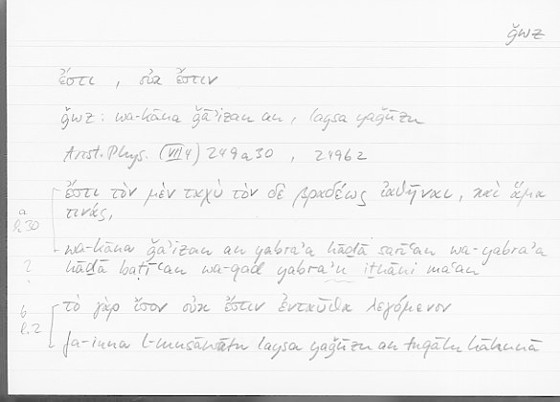 ǧwz
ἔστι , οὐκ ἔστιν
ǧwz: wa-kāna ǧāʾizan an, laysa yaǧūzu
Arist. Phys. (VII 4) 249a30 , 249b2
a ἔστι τὸν μὲν ταχὺ τὸν δὲ βραδέως ἰαθῆναι, καὶ ἅμα
l. 30 τινάς,
wa-kāna ǧāʾizan an yabraʾa hāḏā sarīʿan wa-yabraʾa
? hāḏā baṭīʾan wa-qad yabraʾu iṯnāni maʿan
b τὸ γὰρ ἴσον οὐκ ἔστιν ἐνταῦθα λεγόμενον
l. 2 fa-inna l-musāwātu laysa yaǧūzu an tuqālu hāhunā